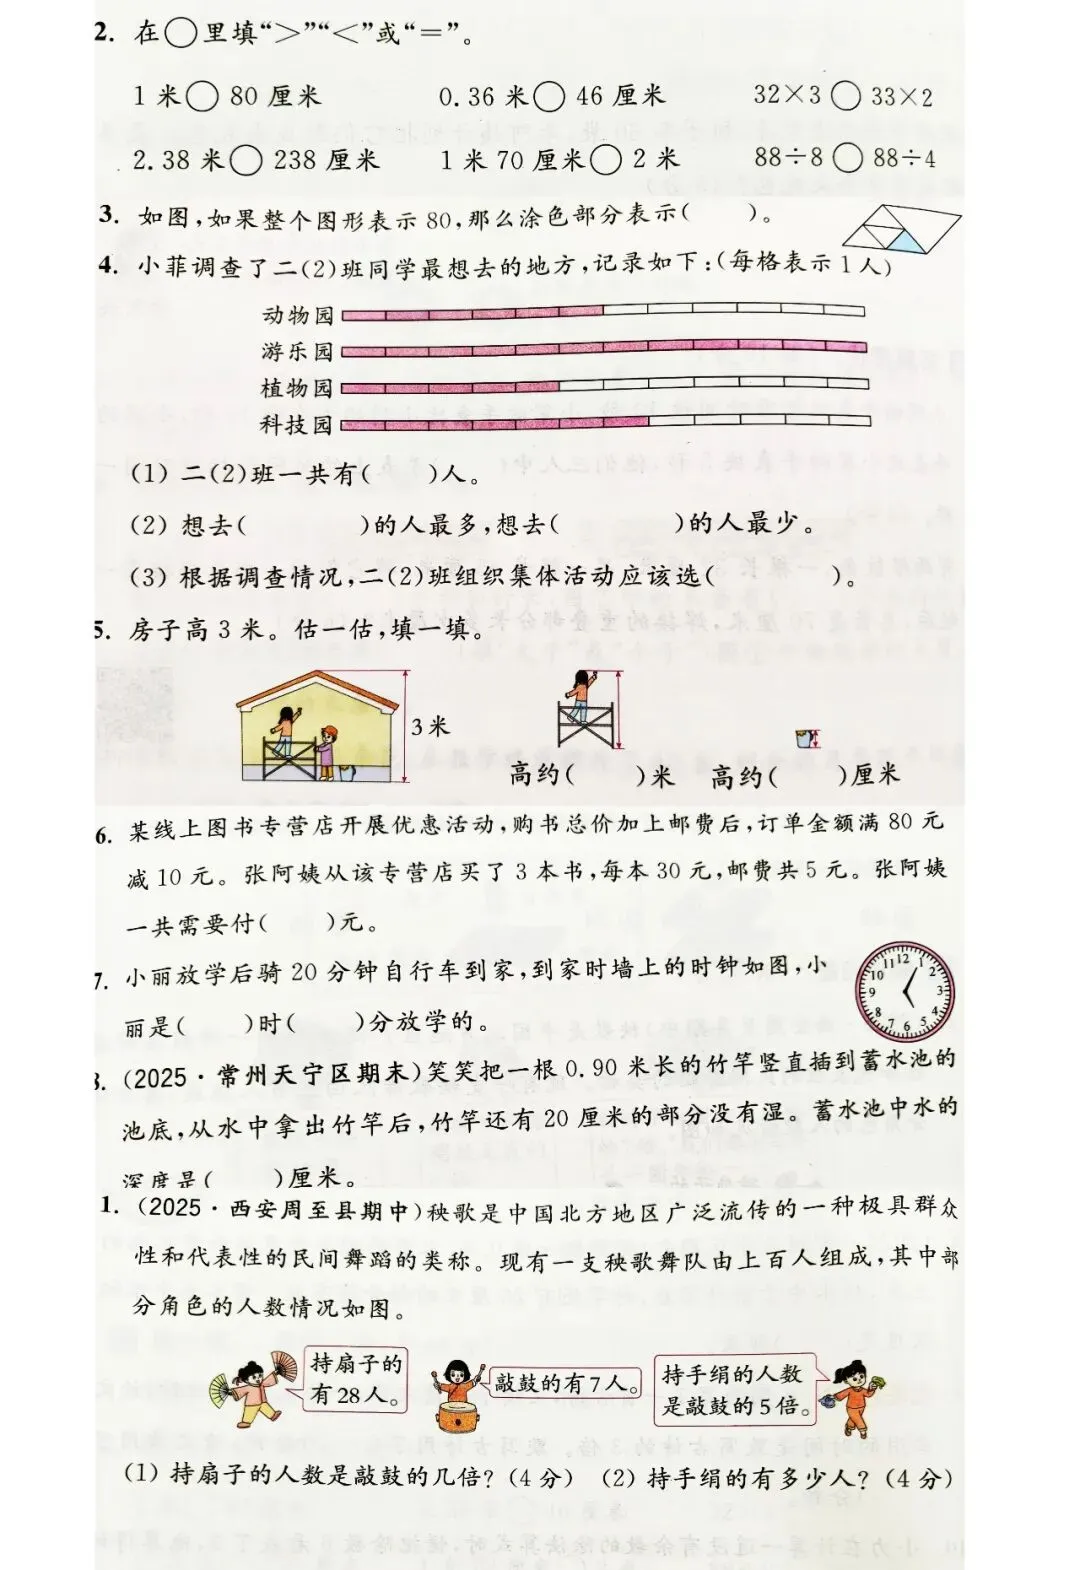 2. 在○里填“>”“<”或“=”。
1 米○ 80 厘米 0.36 米○ 46 厘米 32×3 ○ 33×2
2.38 米○ 238 厘米 1 米 70 厘米○ 2 米 88÷8 ○ 88÷4
3. 如图,如果整个图形表示 80,那么涂色部分表示( )。
4. 小菲调查了二(2)班同学最想去的地方,记录如下:(每格表示 1 人)
动物园
游乐园
植物园
科技园
(1) 二(2)班一共有( )人。
(2) 想去( )的人最多,想去( )的人最少。
(3) 根据调查情况,二(2)班组织集体活动应该选( )。
5. 房子高 3 米。估一估,填一填。
3 米
高约( )米 高约( )厘米
6. 某线上图书专营店开展优惠活动,购书总价加上邮费后,订单金额满 80 元
减 10 元。张阿姨从该专营店买了 3 本书,每本 30 元,邮费共 5 元。张阿姨
一共需要付( )元。
7. 小丽放学后骑 20 分钟自行车到家,到家时墙上的时钟如图,小
丽是( )时( )分放学的。
12 1 2 3 4 5 6 7 8 9 10 11
(2025·常州天宁区期末)笑笑把一根 0.90 米长的竹竿竖直插到蓄水池的
池底,从水中拿出竹竿后,竹竿还有 20 厘米的部分没有湿。蓄水池中水的
深度是( )厘米。
1. (2025·西安周至县期中)秧歌是中国北方地区广泛流传的一种极具群众
性和代表性的民间舞蹈的类称。现有一支秧歌舞队由上百人组成,其中部
分角色的人数情况如图。
持扇子的
有28人。
敲鼓的有7人。
持手绢的人数
是敲鼓的5倍。
(1) 持扇子的人数是敲鼓的几倍? (4 分) (2) 持手绢的有多少人? (4 分)